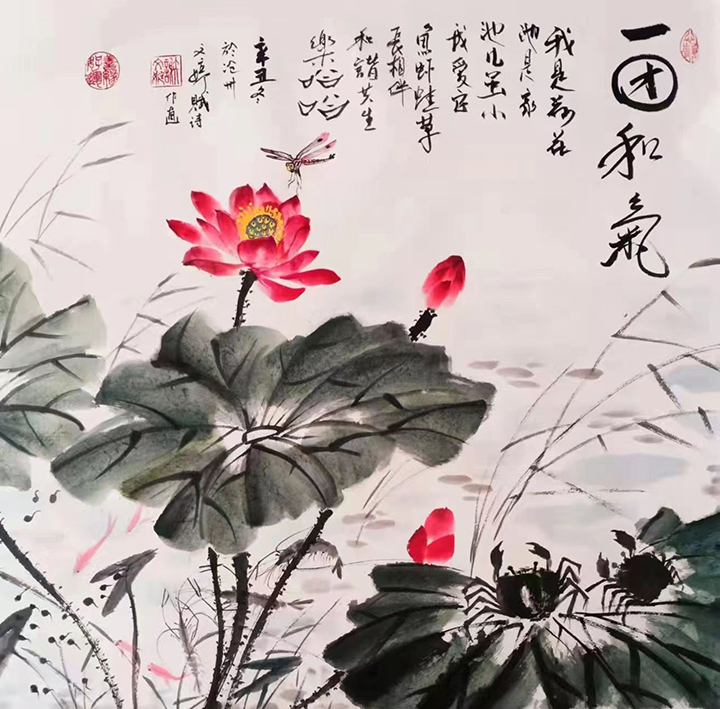 一团和氣
我是荷花
池是家
池儿虽小
我爱它
鱼虾蛙草
長相伴
和諧共生
樂哈哈
辛丑冬
於沧州
文婷赋诗
作画